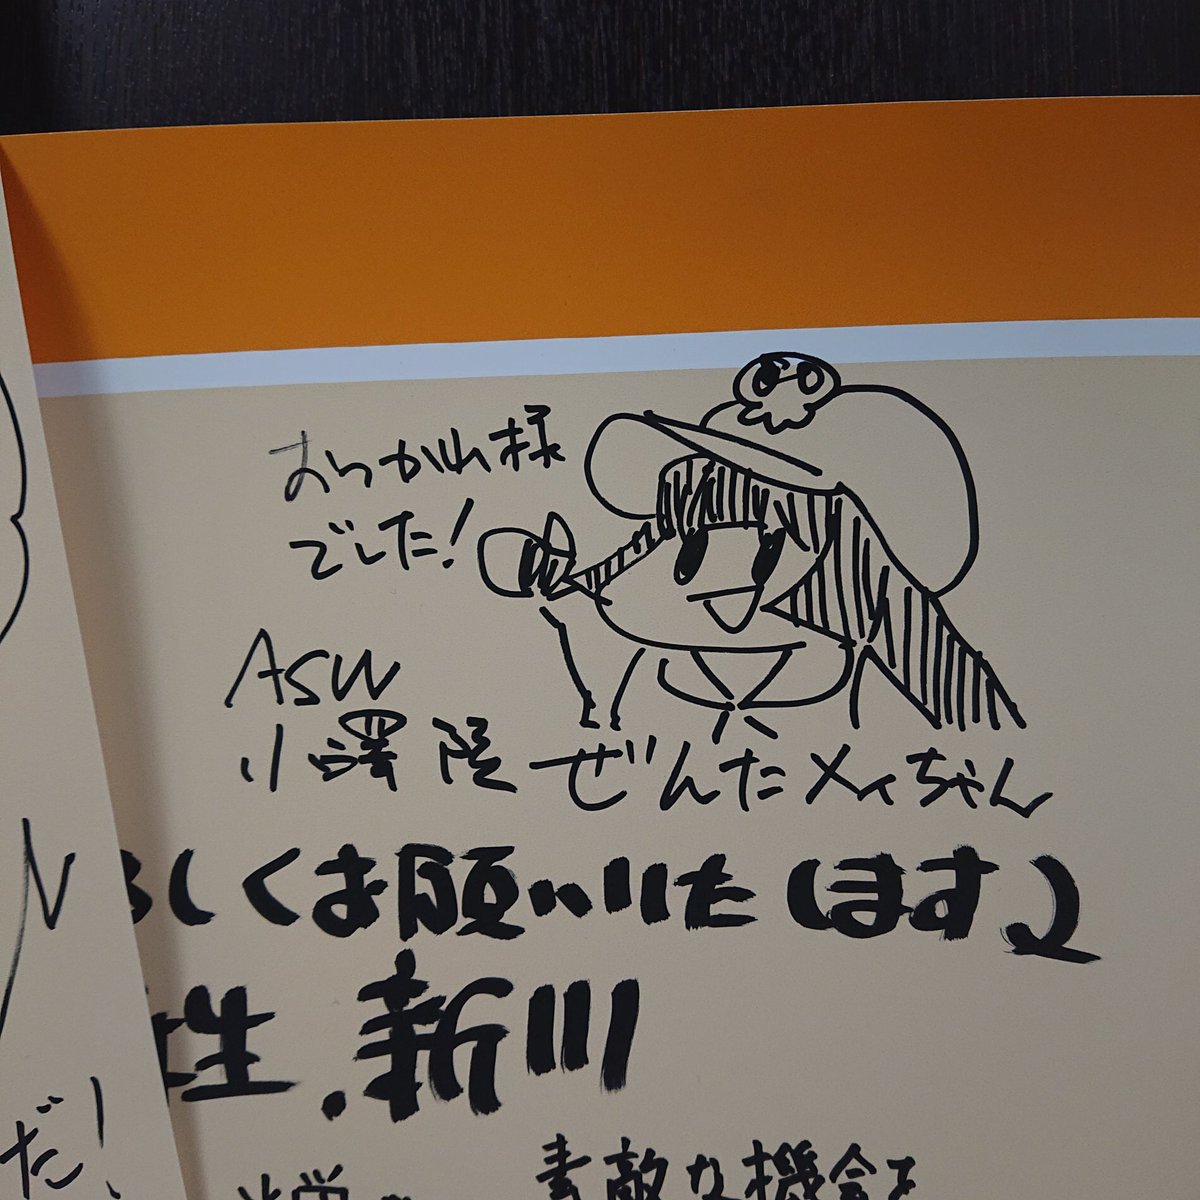 おつかれ様
でした!
ASW
小澤 隆 ぜんたメイちゃん
ろしくお願いいたします。2
性.新川
だ!
素敵な機会を